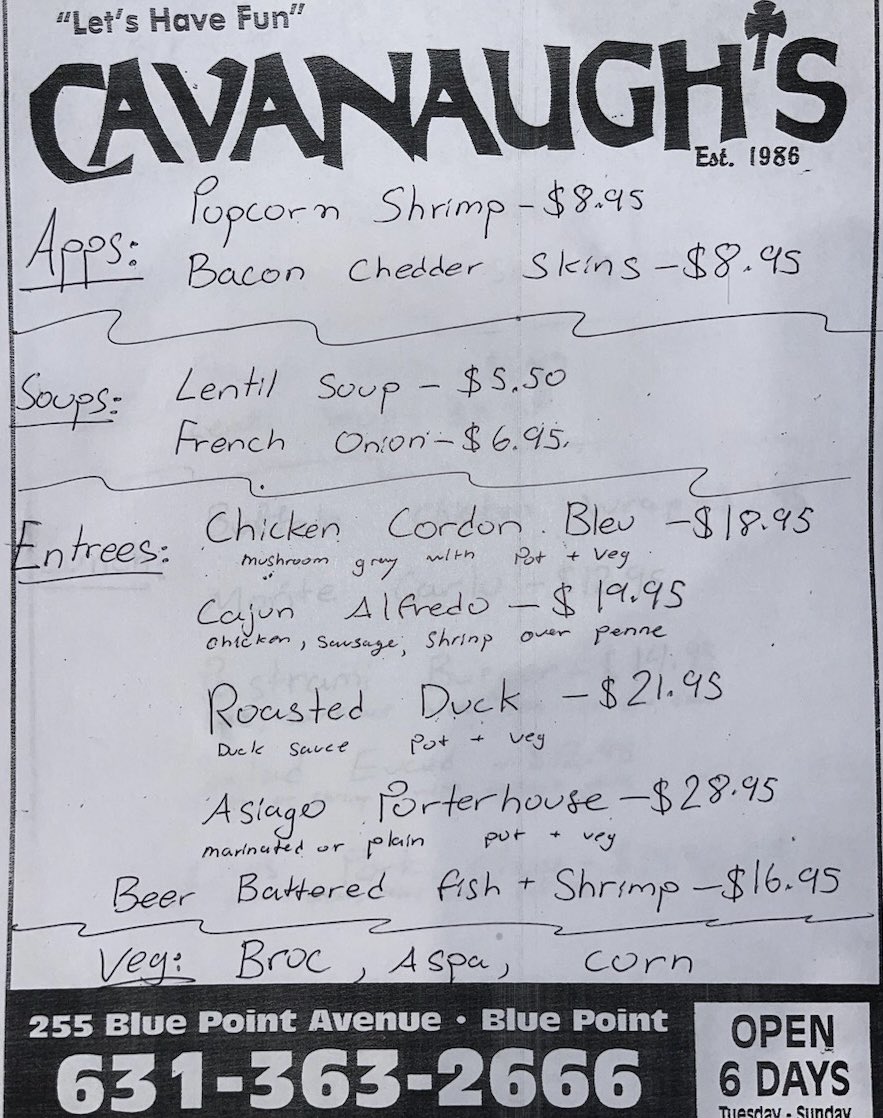 "Let's Have Fun"
CAVANAUGH'S
Est. 1986
Apps:
Popcorn Shrimp - $8.95
Bacon Chedder Skins - $8.95
Soups:
Lentil Soup - $5.50
French Onion - $6.95
Entrees:
Chicken Cordon Bleu - $18.95
mushroom gravy with Pot + Veg
Cajun Alfredo - $19.95
Chicken, Sausage, Shrimp over penne
Roasted Duck - $21.95
Duck Sauce Pot + Veg
Asiago Porterhouse - $28.95
marinated or plain pot + veg
Beer Battered fish + Shrimp - $16.95
Veg: Broc, Aspa, corn
255 Blue Point Avenue • Blue Point
631-363-2666
OPEN
6 DAYS
Tuesday - Sunday